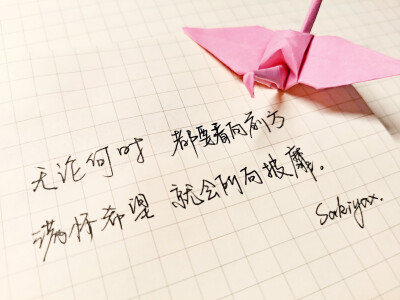 无论何时 都要看向前方
满怀希望 就会所向披靡。
Sakiyax.